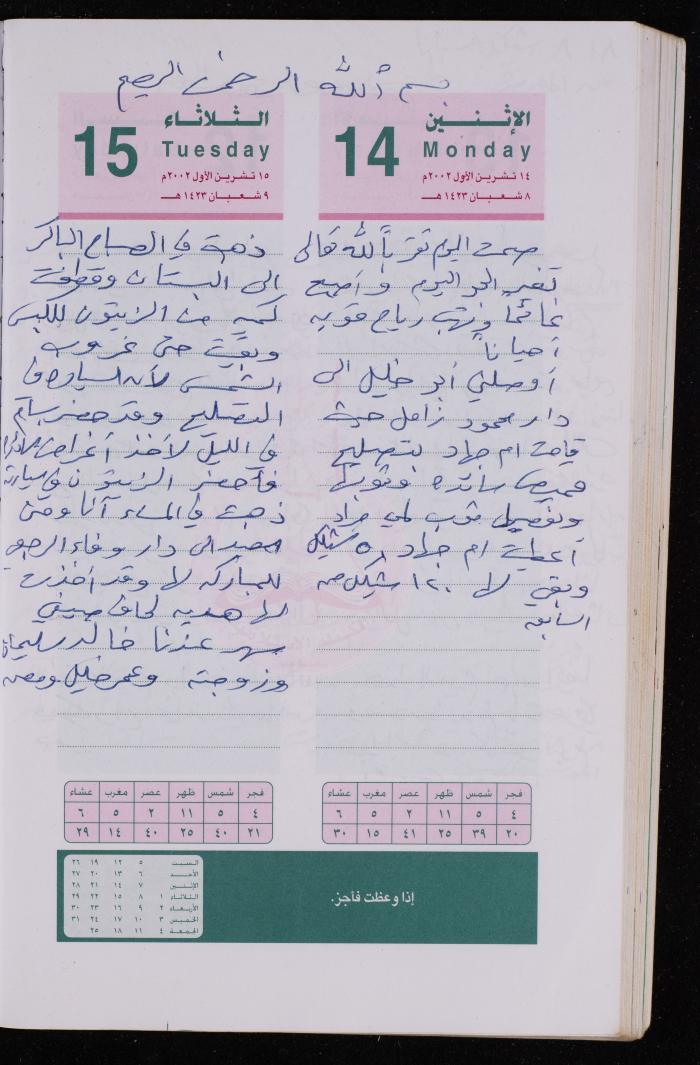 بسم الله الرحمن الرحيم
الإثنين
14
Monday
١٤ تشرين الأول ٢٠٠٢م
٨ شعبان ١٤٢٣ هـ
صمت اليوم تقرباً لله تعالى
تغير الجو اليوم وأصبح
غائماً وتهب رياح قويه
أحياناً
أوصلني أبو خليل الى
دار محمود زامل حيث
قامت ام جهاد بتصليح
قميص ساتره وثوبها
وتفصيل ثوب لي
أعطيت ام جهاد ٥٠ شيكل
وبقي لا ١٢٠ شيكل من
السابقه
الثلاثاء
15
Tuesday
١٥ تشرين الأول ٢٠٠٢م
٩ شعبان ١٤٢٣ هـ
ذهبت في الصباح الباكر
الى البستان وقطفت
كميه من الزيتون للكبس
وبقيت حتى غروب
الشمس لأن السياره في
التصليح وقد حضر بسام
في الليل لأخذ أغراض
فأحضر الزيتون في سيارته
ذهبت في المساء أنا ومنى
الى دار وفاء
للمباركه لا وقد أخذت
لا هديه لحاف صيفي
سهر عندنا خالد سليمان
وزوجته وعمر خليل ومعه
فجر شمس ظهر عصر مغرب عشاء
٤ ٥ ١١ ٢ ٥ ٦
٢٠ ٣٩ ٢٥ ٤١ ١٥ ٣٠
فجر شمس ظهر عصر مغرب عشاء
٤ ٥ ١١ ٢ ٥ ٦
٢١ ٤٠ ٢٥ ٤٠ ١٤ ٢٩
إذا وعظت فأجز.
السبت ٥ ١٢ ١٩ ٢٦
الأحد ٦ ١٣ ٢٠ ٢٧
الإثنين ٧ ١٤ ٢١ ٢٨
الثلاثاء ١ ٨ ١٥ ٢٢ ٢٩
الأربعاء ٢ ٩ ١٦ ٢٣ ٣٠
الخميس ٣ ١٠ ١٧ ٢٤ ٣١
الجمعة ٤ ١١ ١٨ ٢٥